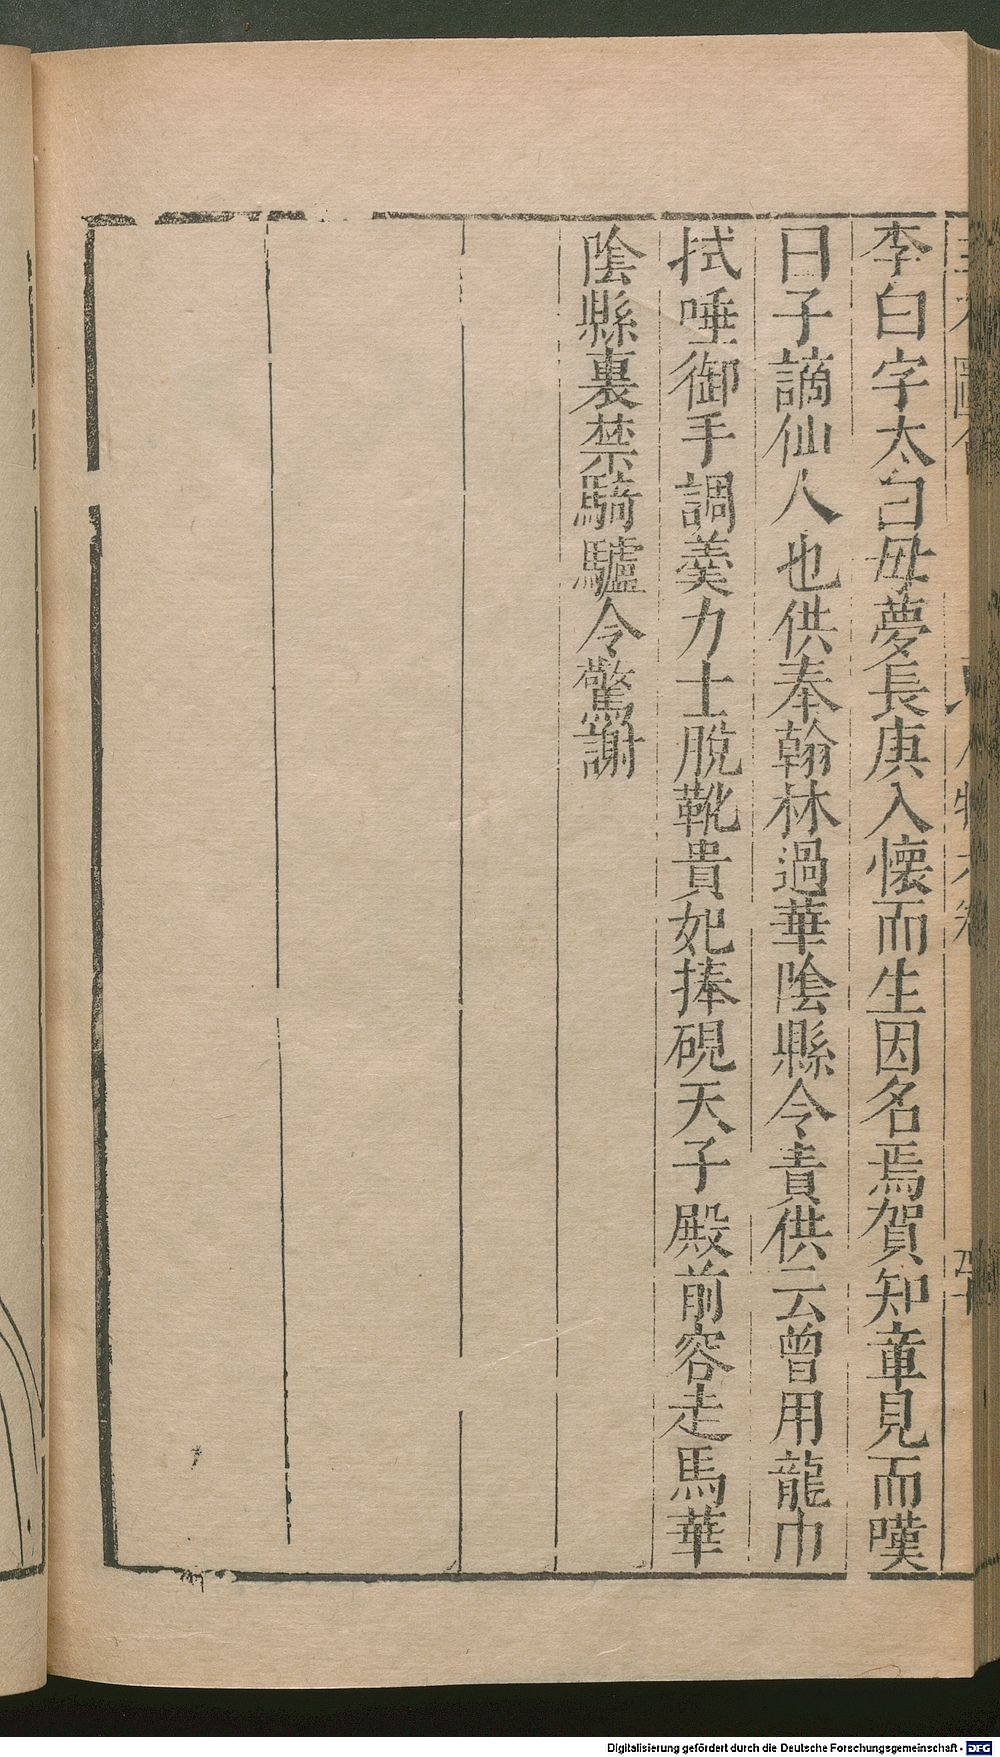 李白字太白母夢長庚入懷而生因名焉賀知章見而嘆
曰子謫仙人也供奉翰林過華陰縣令責供云曾用龍巾
拭唾御手調羹力士脫靴貴妃捧硯天子殿前容走馬華
陰縣裏禁騎驢令驚謝
Digitalisierung gefördert durch die Deutsche Forschungsgemeinschaft - DFG